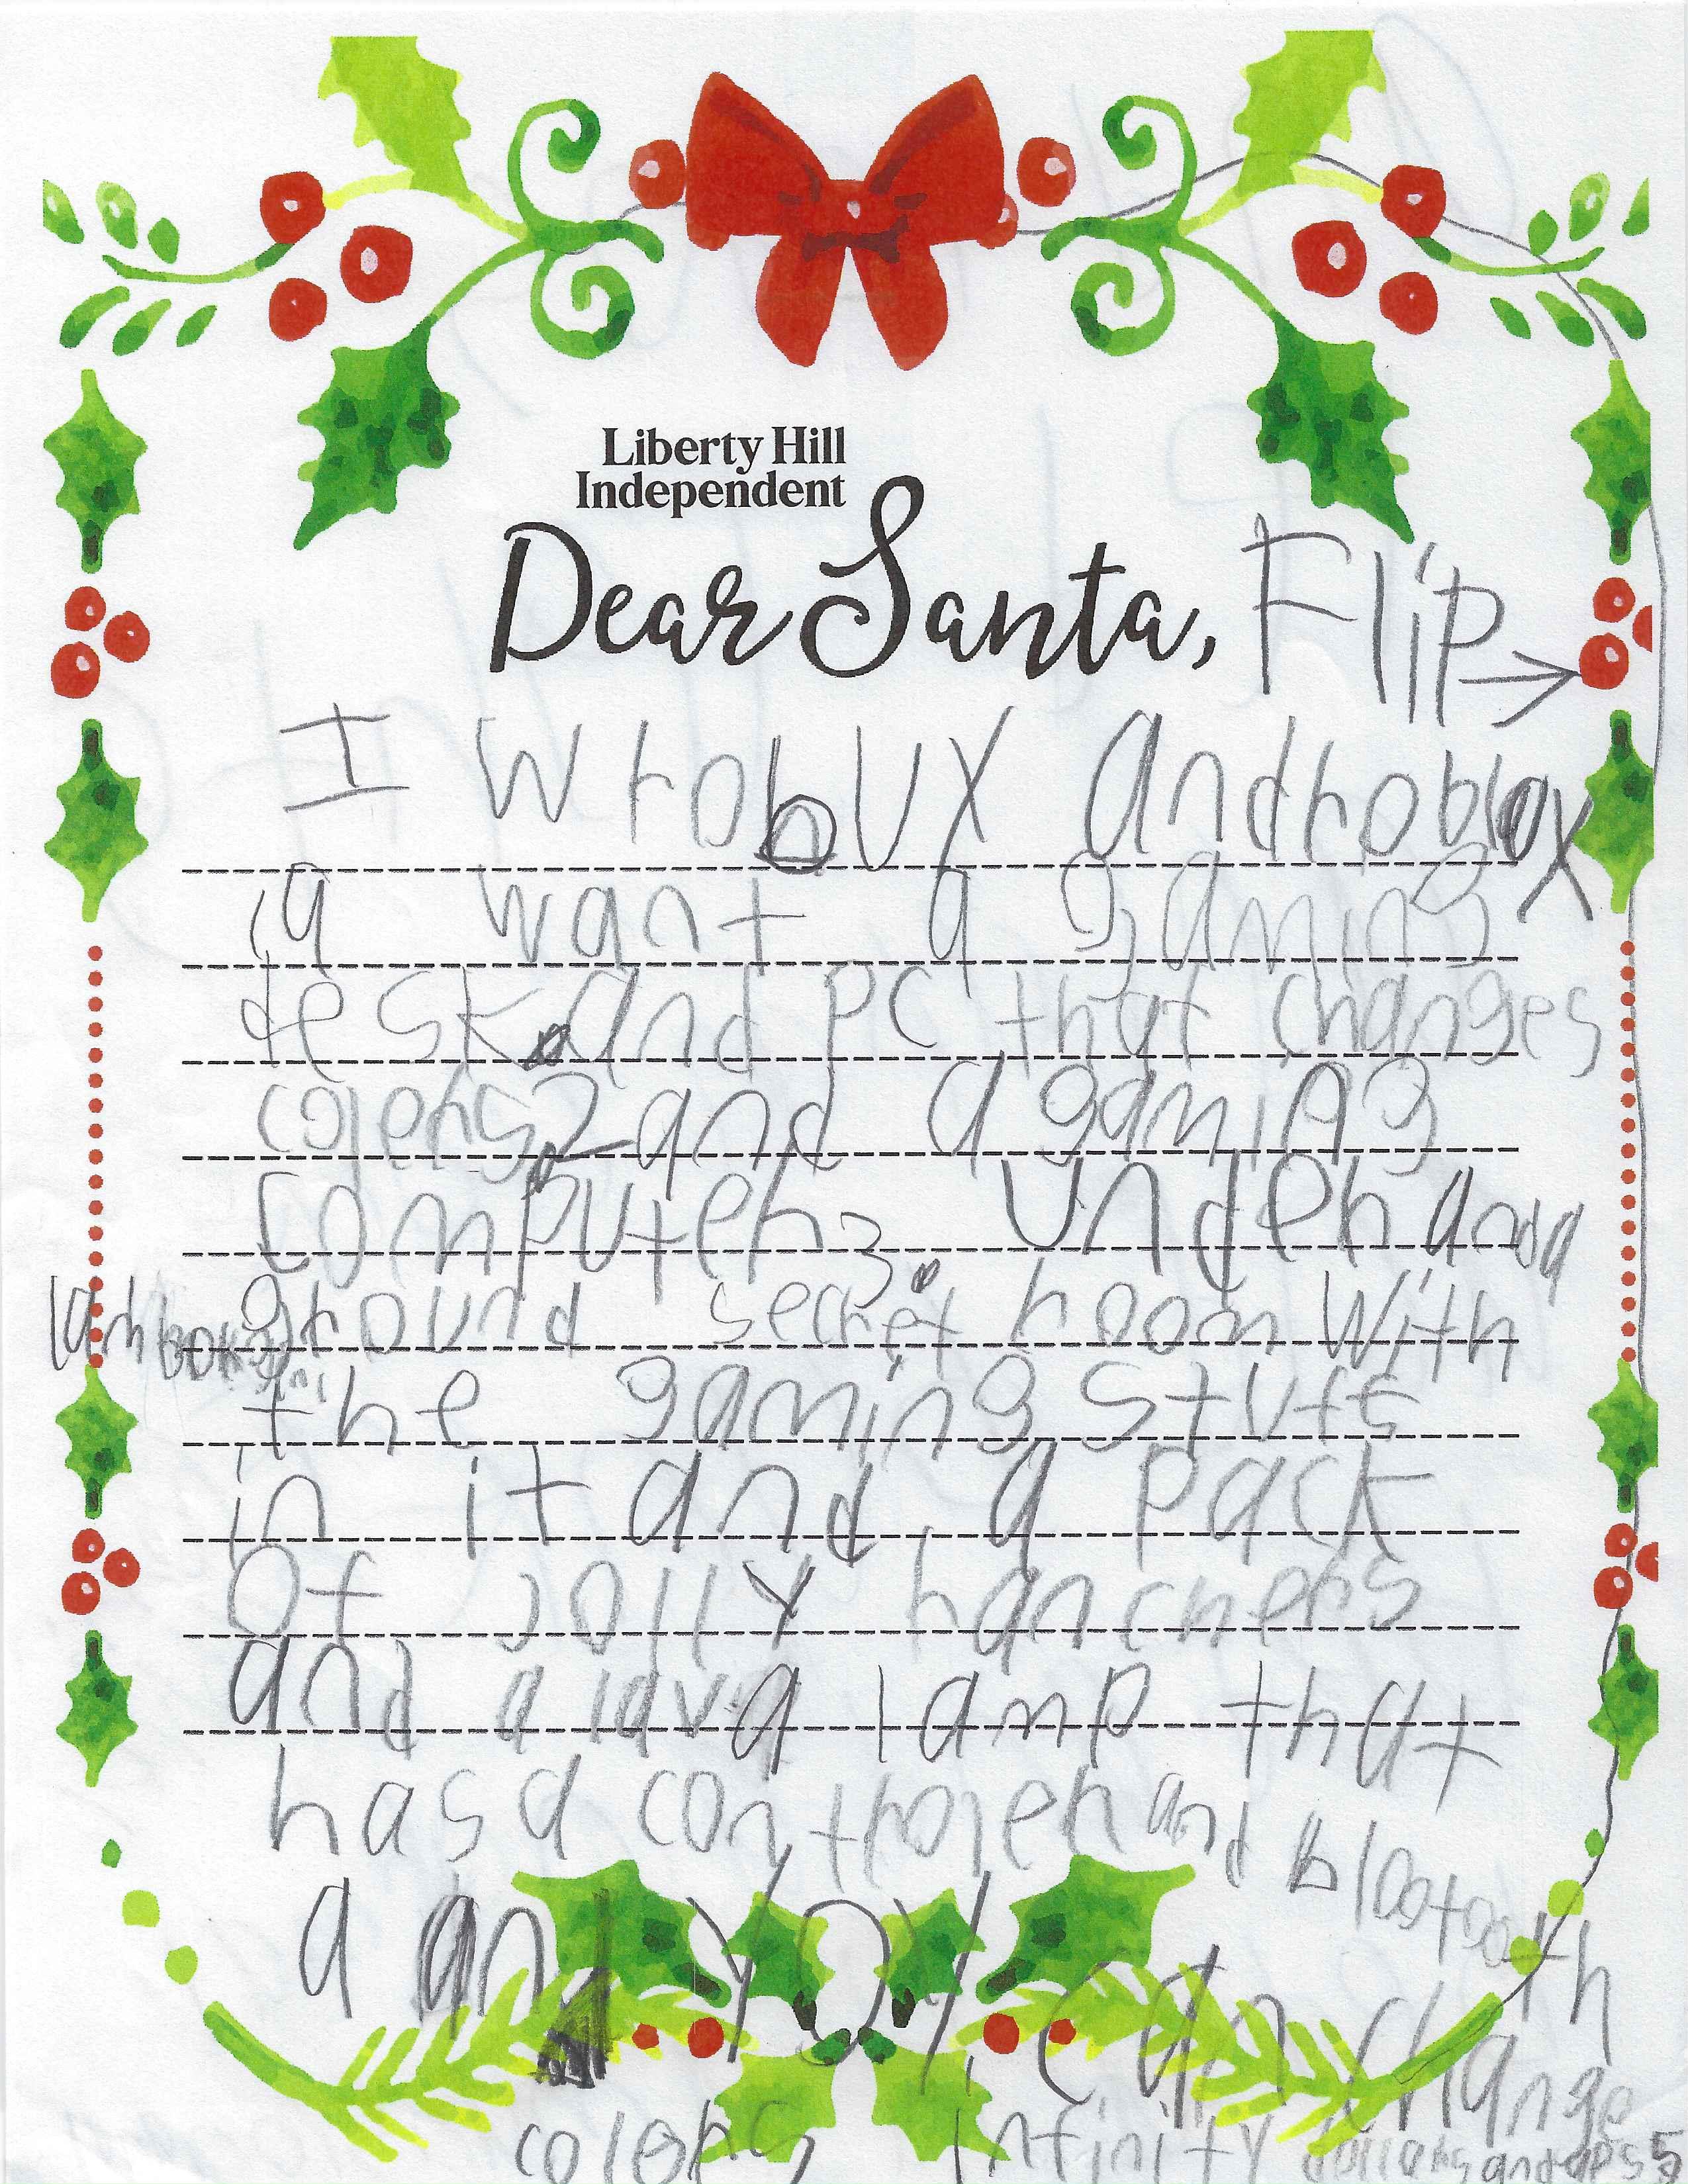 Liberty Hill
Independent
Dear Santa, Flip
I w robux and roblox
ia want a gaming
desk. and PC that changes
colers 2 and a gaming
computer 3. under and a
ground secret room with
the gaming stuff
in it and a pack
of jolly ranchers
and a lava lamp that
has a controler and blootooth
a and you can change
colors infinity dollars and a ps5